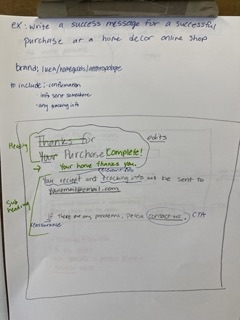 ex: Write a success message for a successful
purchase at a home decor online shop
brand: 
to include: - confirmation
info sent somewhere
- any tracking info
Heading
Thanks for
edits
Your Purchase Complete!
→ Your home thanks you.
Sub
heading
Your reciept and tracking info will be sent to
youremail@email.com
If there are any problems, please contact us.
CTA
reassurance